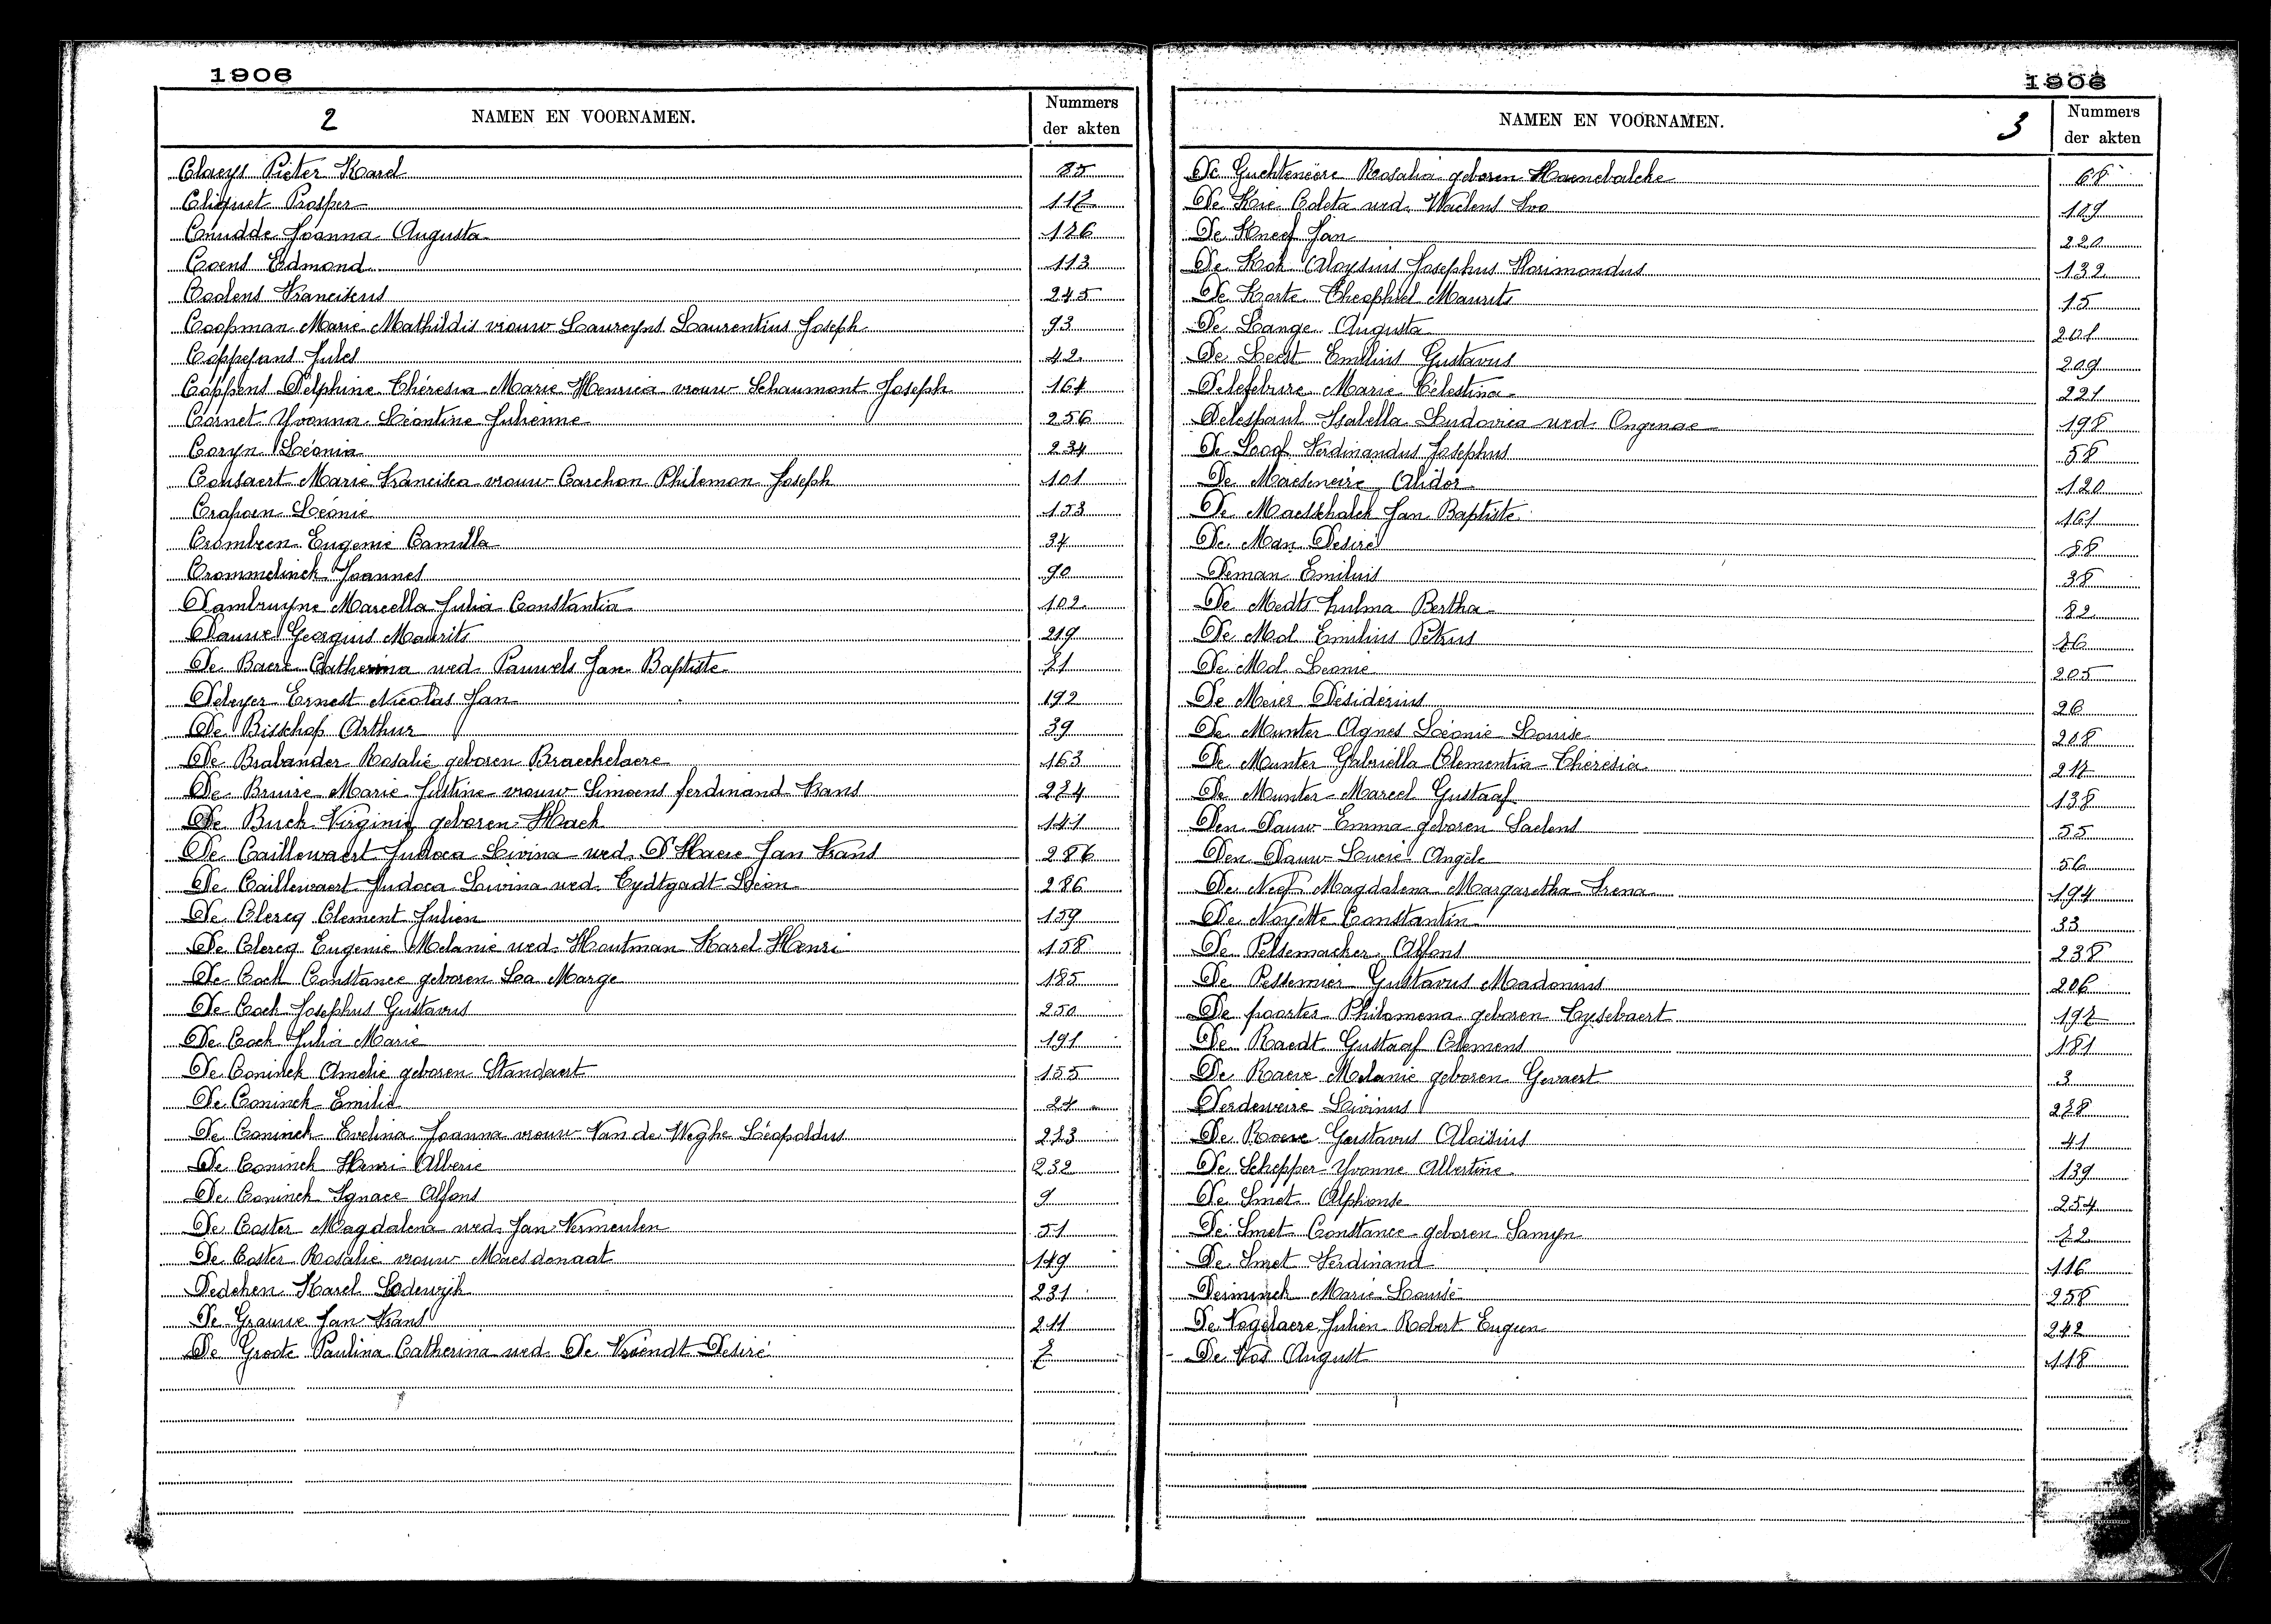 1906
2 NAMEN EN VOORNAMEN. Nummers der akten
Claeys Pieter Karel 85
Cliquet Prosper 117
Cnudde Joanna Augusta 126
Coens Edmond 113
Coolens Franciscus 245
Coopman Marie Mathildis vrouw Laureyns Laurentius Joseph 93
Coppejans Jules 42
Coppens Delphine Thérésia Marie Henrica vrouw Schaumont Joseph 164
Cornet Yvonna Léontine Julienne 256
Coryn Léonia 234
Cousaert Marie Francisca vrouw Carchon Philemon Joseph 101
Crapoen Léonie 153
Crombeen Eugenie Camilla 34
Crommelinck Joannes 90
Dambruyne Marcella Julia Constantia 102
Dauwe Georgius Maurits 219
De Baere Catherina wed. Pauwels Jan Baptiste 71
Debeyer Ernest Nicolas Jan 192
De Bisschop Arthur 39
De Brabander Rosalie geboren Braeckelaere 163
De Bruire Marie Justine vrouw Simoens ferdinand Frans 274
De Buck Virginie geboren Haeck 141
De Caillewaert Judoca Livina wed. D'Haere Jan Frans 286
De Caillewaert Judoca Livina wed. Eydtgadt Léon 286
De Clercq Clement Julien 159
De Clercq Eugenie Melanie wed. Houtman Karel Henri 158
De Cock Constance geboren La Marge 185
De Cock Josephus Gustavus 250
De Cock Julia Marie 191
De Coninck Amelie geboren Standaert 155
De Coninck Emilie 24
De Coninck Evelina Joanna vrouw Van de Weghe Léopoldus 273
De Coninck Henri Alberic 232
De Coninck Ignace Alfons 9
De Coster Magdalena wed. Jan Vermeulen 51
De Coster Rosalie vrouw Maesdonaat 149
Dedeken Karel Lodewijk 231
De Grauwe Jan Frans 211
De Groote Paulina Catherina wed. De Vriendt Desiré 7
1906
NAMEN EN VOORNAMEN. 3 Nummers der akten
De Guchteneere Rosalia geboren Haenebalcke 68
De Kie Coleta wed. Waelens Ivo 109
De Kneef Jan 220
De Kok Aloysius Josephus Florimondus 132
De Korte Theophiel Maurits 15
De Lange Augusta 201
De Leest Emilius Gustavus 209
Delefebvre Marie Célestina 221
Delespaul Isabella Ludovica wed. Ongenae 198
De Loof Ferdinandus Josephus 58
De Maeseneire Alidor 120
De Maesschalck Jan Baptiste 161
De Man Desiré 88
Deman Emilius 38
De Medts Zulma Bertha 82
De Mol Emilius Petrus 76
De Mol Leonie 205
De Meier Désidérius 26
De Munter Agnes Léonie Louise 208
De Munter Gabriella Clementia Thérésia 217
De Munter Marcel Gustaaf 138
Den Dauw Emma geboren Saelens 55
Den Dauw Lucie Angèle 56
De Neef Magdalena Margaretha Irena 194
De Noyette Constantin 33
De Pelsemaeker Alfons 238
De Pessemier Gustavus Madonius 206
De poorter Philomena geboren Cysebaert 197
De Raedt Gustaaf Clemens 181
De Raeve Melanie geboren Gevaert 3
Derdeweire Livinus 278
De Roeve Gustavus Aloïsius 41
De Schepper Yvonne Albertine 139
De Smet Alphonse 254
De Smet Constance geboren Samyn 72
De Smet Ferdinand 116
Desiminck Marie Louise 258
De Vogelaere Julien Robert Eugeen 242
De Vos August 118